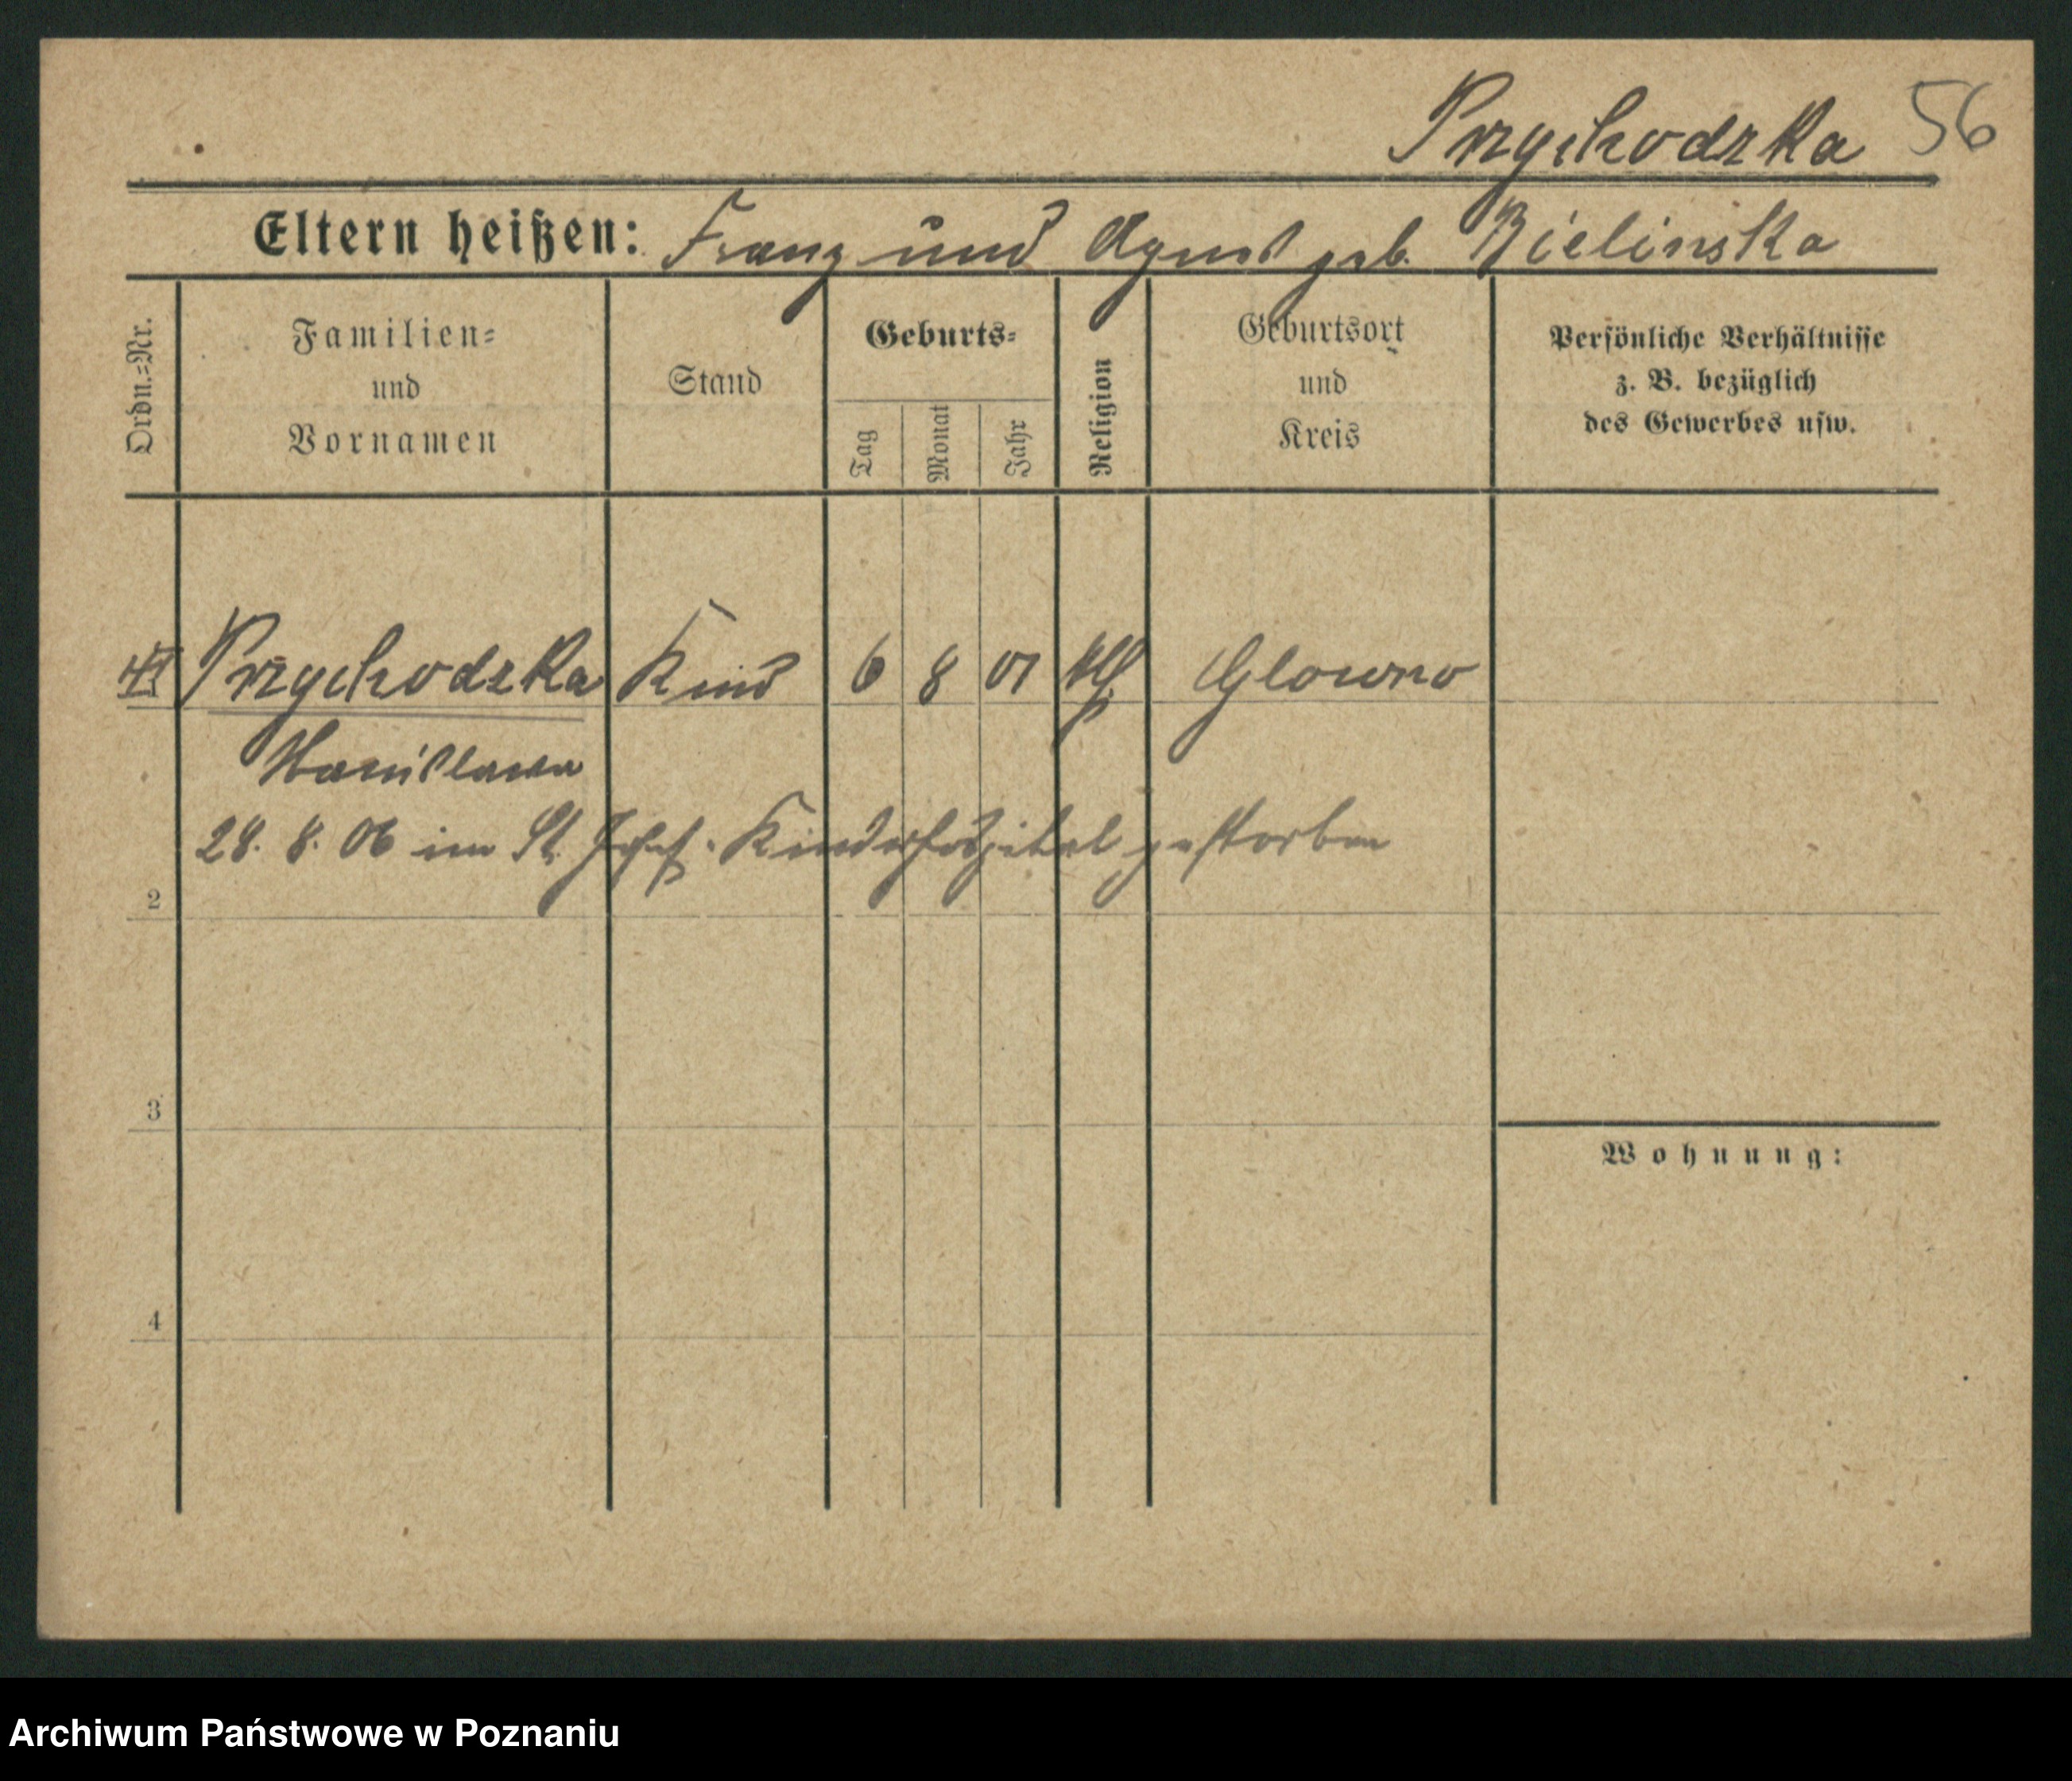 Przychodzka 56
Eltern heißen: Franz und Agnes geb. Bielinska
Ordn.-Nr.
Familien-
und
Vornamen
Stand
Geburts-
Tag
Monat
Jahr
Religion
Geburtsort
und
Kreis
Persönliche Verhältnisse
z. B. bezüglich
des Gewerbes usw.
Przychodzka Kind 6 8 01 Glowno
Stanislawa
28. 8. 06 im St. Josef-Kinderhospital gestorben
2
3
Wohnung:
4
Archiwum Państwowe w Poznaniu